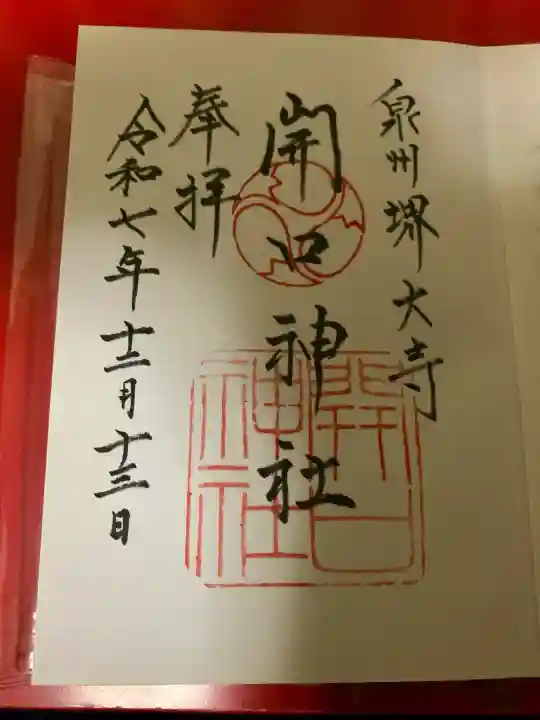 泉州堺大寺
開口神社
奉拝
令和七年十二月十三日
開口
神社